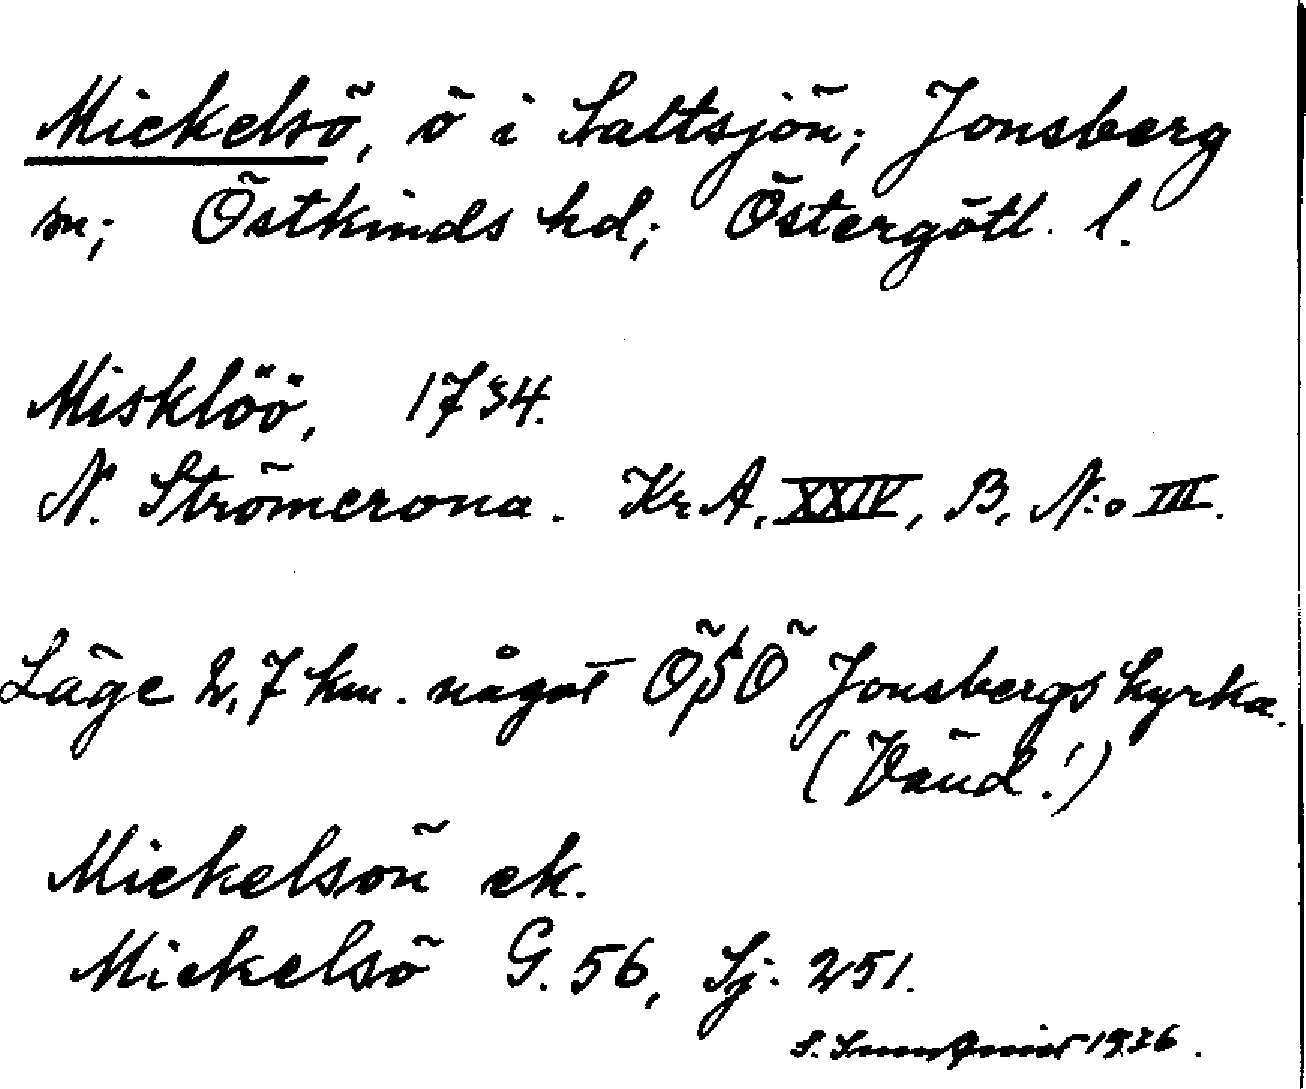 Mickelsö, ö i Saltsjön; Jonsberg
sn; Östkinds hd; Östergötl. l.
Misklöö, 1734.
N. Strömcrona. Kr. A. XXIV, B. N:o III.
Läge 2,7 km. något ÖSÖ Jonsbergs kyrka.
(Vänd!)
Mickelsön ek.
Mickelsö G. 56, Sj. 251.
S. 1936.